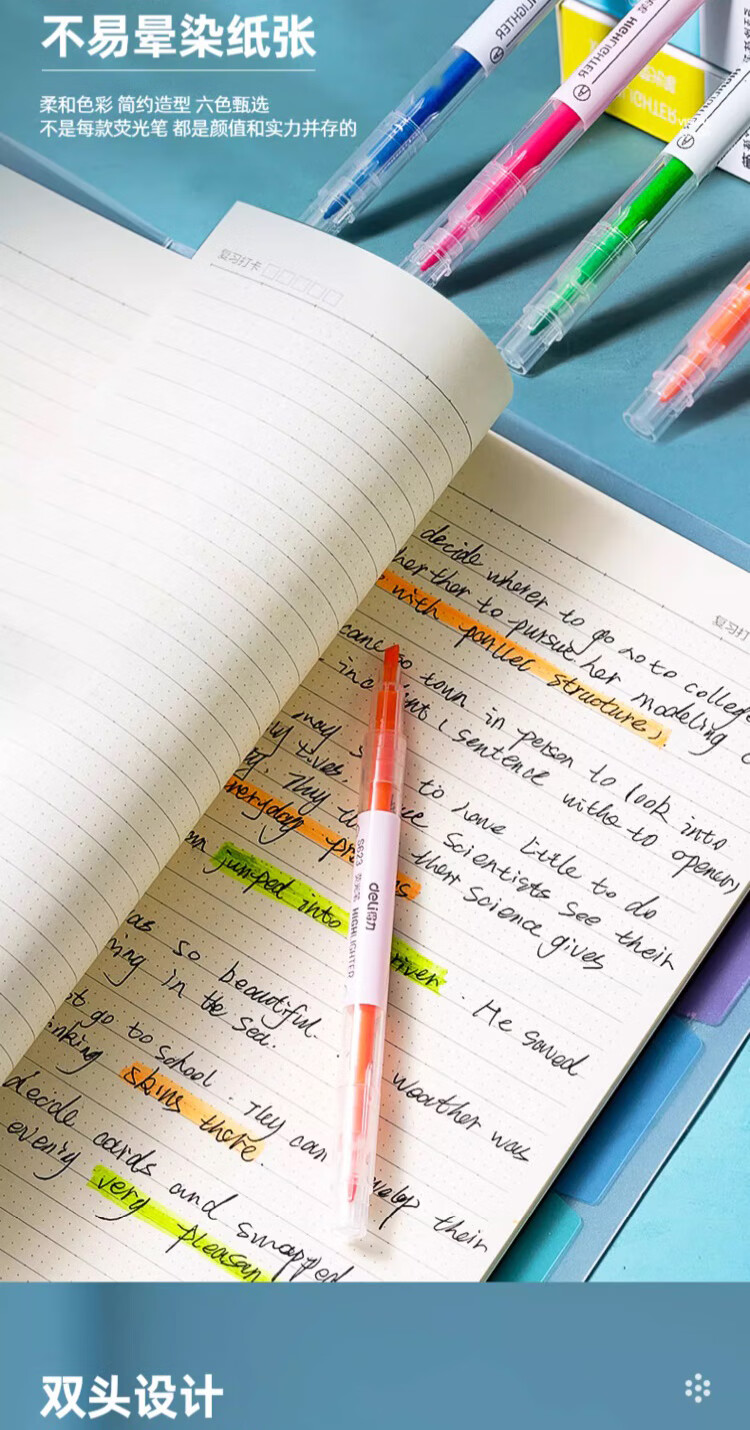 不易晕染纸张
柔和色彩 简约造型 六色甄选
不是每款荧光笔 都是颜值和实力并存的
HIGHLIGHTER
HIGHLIGHTER
复习打卡
复习打
decide wherer to go noto college
herther to pursue her modeling
with parllel structure).
came so town in person to look into
incident (sentence withe to opening
may s to have little to do
lives, Scientists see their
They their Science gives
everyday pr
jumped into river. He saved
as so beautiful. weather was
ring in the sea.
go to school. They can their
nking skins there.
decide cards and swapped
evenry very pleasan
S623 荧光笔 HIGHLIGHTER
deli得力
双头设计